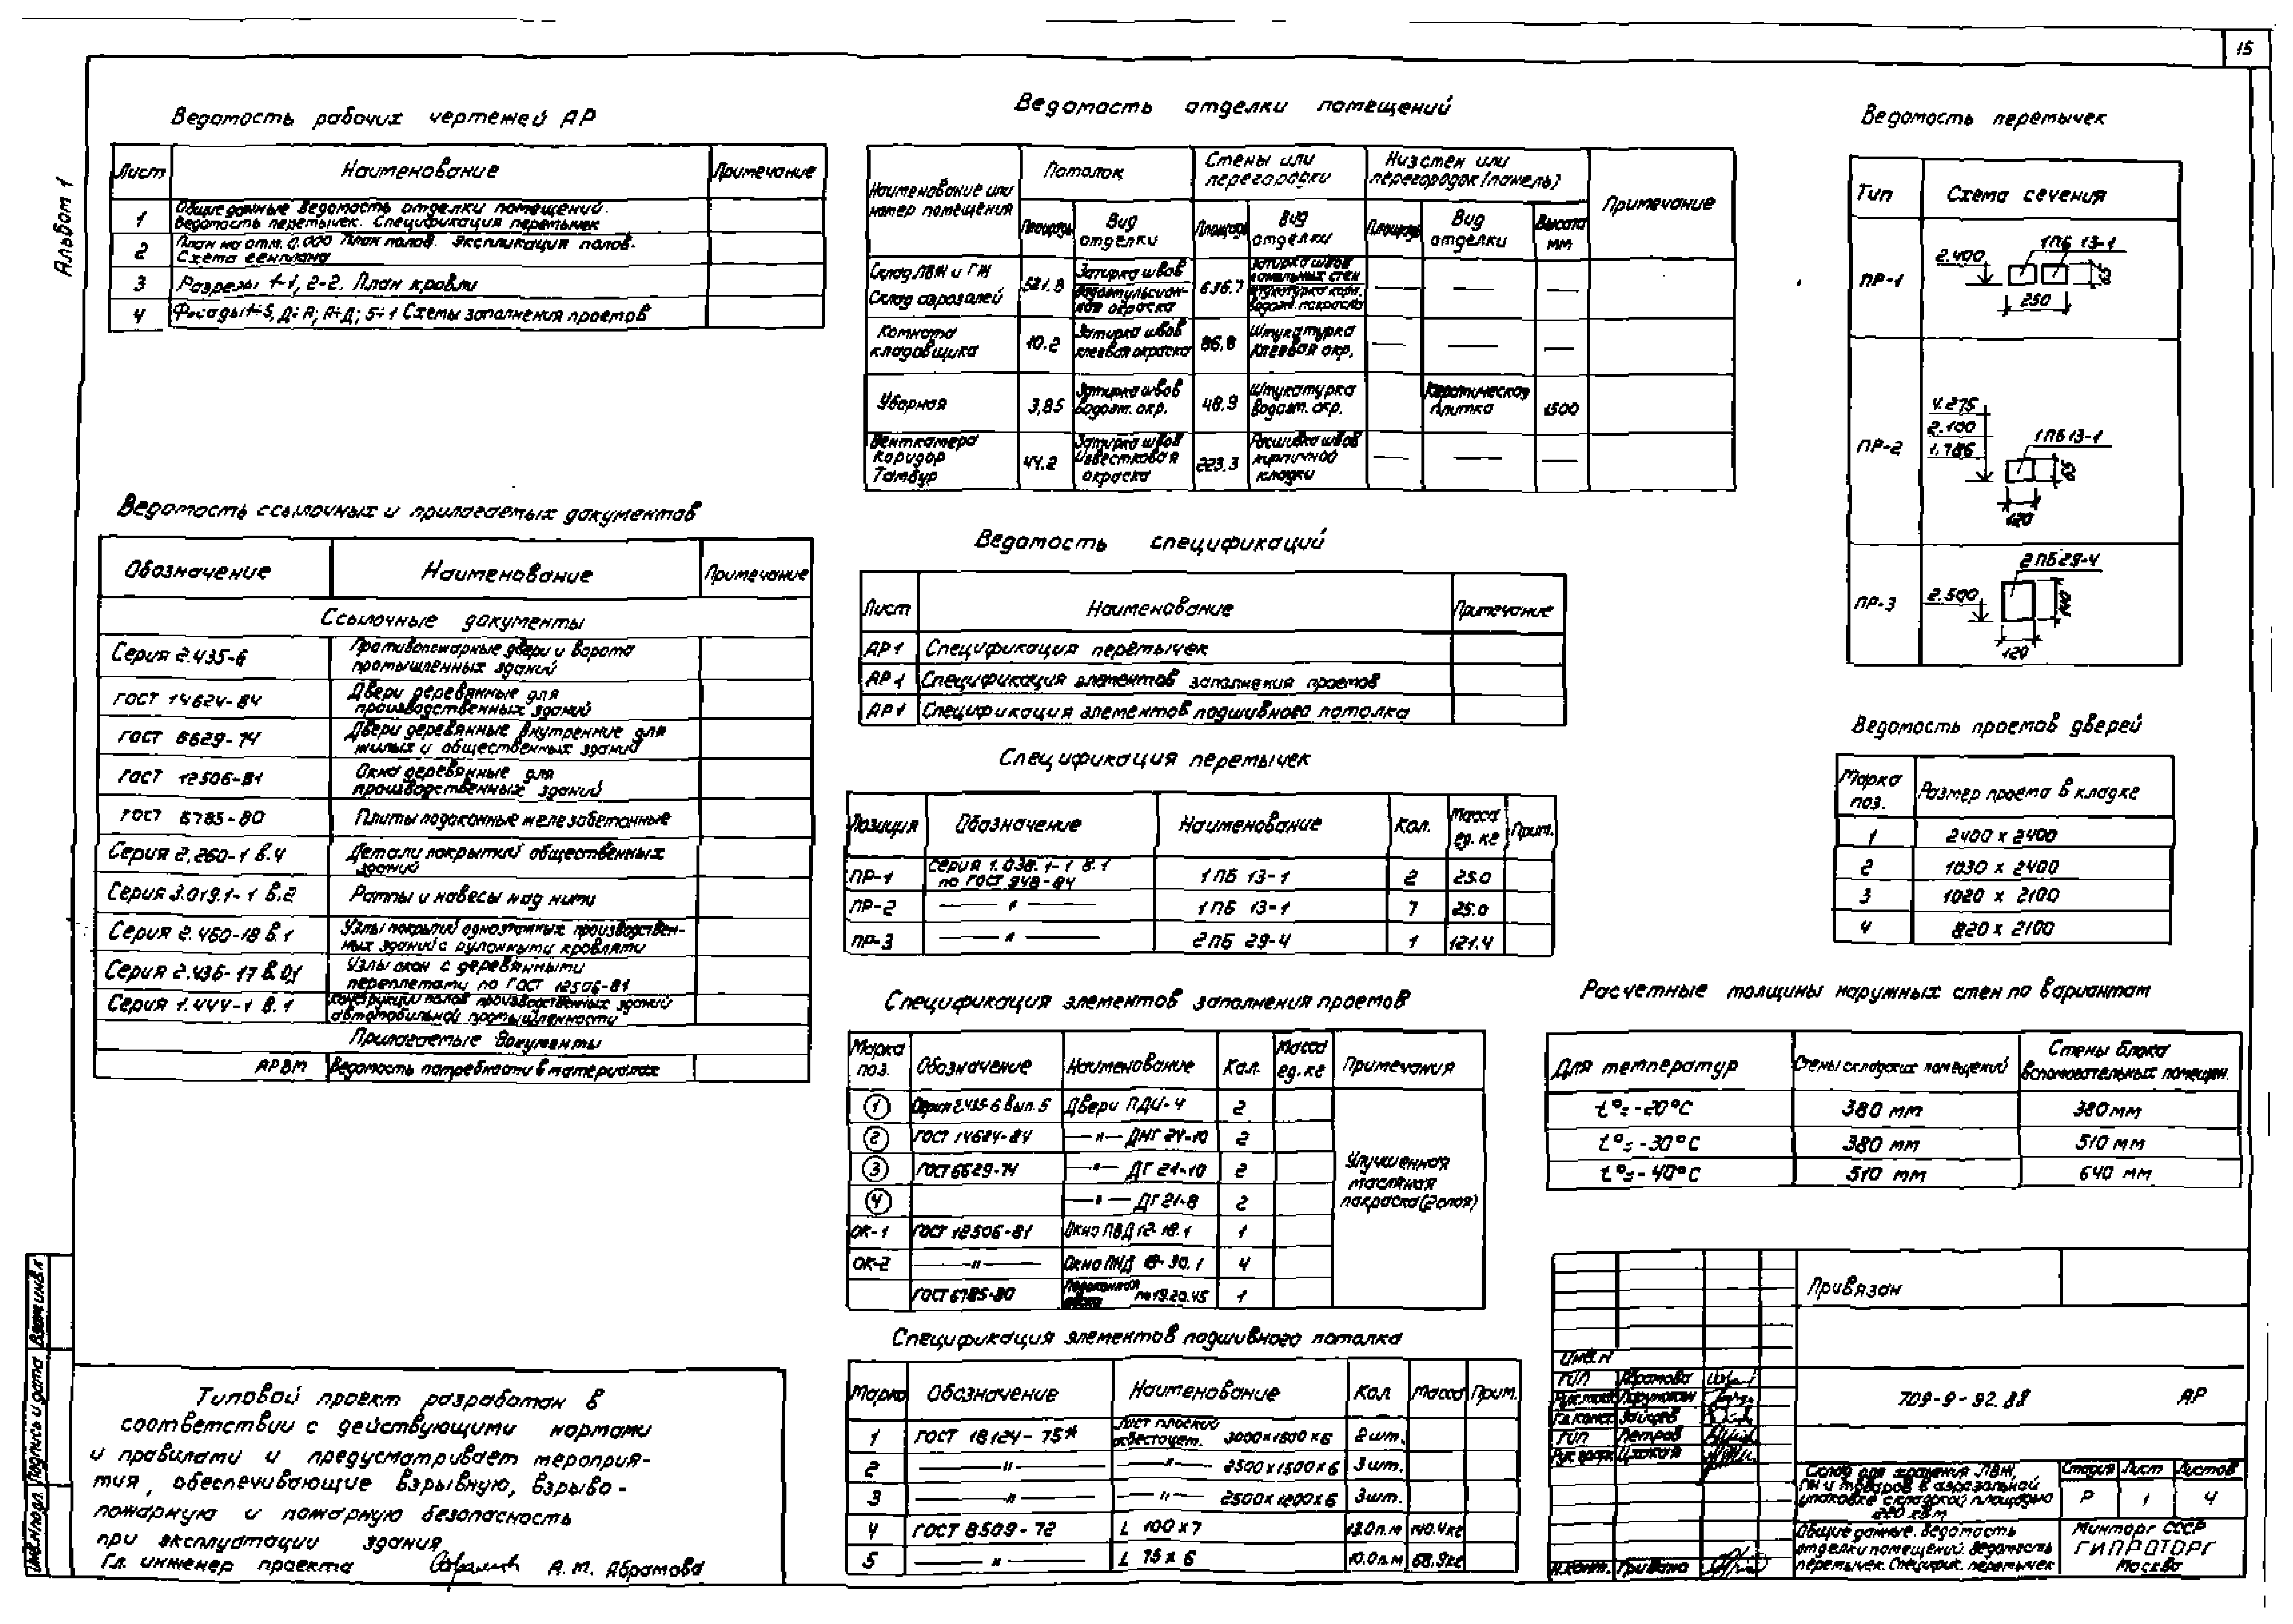 15
Альбом 1
Ведомость рабочих чертежей АР
Лист Наименование Примечание
1 Общие данные Ведомость отделки помещений.
Ведомость перемычек. Спецификация перемычек
2 План на отм. 0.000 План полов. Экспликация полов.
Схема генплана
3 Разрезы 1-1, 2-2. План кровли
4 Фасады 1÷5, Д÷А; А÷Д; 5÷1 Схемы заполнения проемов
Ведомость ссылочных и прилагаемых документов
Обозначение Наименование Примечание
Ссылочные документы
Серия 2.435-6 Противопожарные двери и ворота
промышленных зданий
ГОСТ 14624-84 Двери деревянные для
производственных зданий
ГОСТ 6629-74 Двери деревянные внутренние для
жилых и общественных зданий
ГОСТ 12506-81 Окна деревянные для
производственных зданий
ГОСТ 6785-80 Плиты подоконные железобетонные
Серия 2.260-1 в.4 Детали покрытий общественных
зданий
Серия 3.019.1-1 в.2 Рампы и навесы над ними
Серия 2.460-18 в.1 Узлы покрытий одноэтажных производствен-
ных зданий с рулонными кровлями
Серия 2.436-17 в.0,1 Узлы окон с деревянными
переплетами по ГОСТ 12506-81
Серия 1.444-1 в.1 Конструкции полов производственных зданий
автомобильной промышленности
Прилагаемые документы
АРВМ Ведомость потребности в материалах
Типовой проект разработан в
соответствии с действующими нормами
и правилами и предусматривает мероприя-
тия, обеспечивающие взрывную, взрыво-
пожарную и пожарную безопасность
при эксплуатации здания
Гл. инженер проекта А.М. Абрамова
Инв.№ подл. Подпись и дата Взам инв.№
Ведомость отделки помещений
Наименование или
номер помещения
Потолок
Стены или
перегородки
Низ стен или
перегородок (панель)
Примечание
Площадь Вид
отделки
Площадь Вид
отделки
Площадь Вид
отделки
Высота
мм
Склад ЛВЖ и ГЖ
Склад аэрозолей
521.8 Затирка швов
Водоэмульсион-
ная окраска
636.7 Затирка швов
панельных стен
Штукатурка кирп.
водоэм. покраска
— — —
Комната
кладовщика
10.2 Затирка швов
клеевая окраска
86,8 Штукатурка
клеевая окр.
— — —
Уборная 3,85 Затирка швов
водоэм. окр.
48.9 Штукатурка
водоэм. окр.
Керамическая
плитка
1500
Венткамера
Коридор
Тамбур
44.2 Затирка швов
Известковая
окраска
223.3 Расшивка швов
кирпичной
кладки
— — —
Ведомость спецификаций
Лист Наименование Примечание
АР1 Спецификация перемычек
АР1 Спецификация элементов заполнения проемов
АР1 Спецификация элементов подшивного потолка
Спецификация перемычек
Позиция Обозначение Наименование Кол. Масса
ед. кг Прим.
ПР-1 Серия 1.038.1-1 в.1
по ГОСТ 948-84 1 ПБ 13-1 2 25.0
ПР-2 — " — 1 ПБ 13-1 7 25.0
ПР-3 — " — 2 ПБ 29-4 1 121.4
Спецификация элементов заполнения проемов
Марка
поз. Обозначение Наименование Кол. Масса
ед. кг Примечания
1 Серия 2.435-6 вып. 5 Двери ПДИ-4 2
2 ГОСТ 14624-84 —"— ДНГ 24-10 2
3 ГОСТ 6629-74 —"— ДГ 21-10 2
4 —"— ДГ 21-8 2
ОК-1 ГОСТ 12506-81 Окно ПВД 12-18.1 1
ОК-2 —"— Окно ПНД 18-30.1 4
ГОСТ 6785-80 Подоконная
доска по 19.20.45 1
Улучшенная
масляная
покраска (2 слоя)
Спецификация элементов подшивного потолка
Марка Обозначение Наименование Кол Масса Прим.
1 ГОСТ 18124-75* Лист плоский
асбестоцем. 3000x1500x6 2 шт.
2 —"— —"— 2500x1500x6 3 шт.
3 —"— —"— 2500x1200x6 3 шт.
4 ГОСТ 8509-72 L 100x7 13.0 п.м 140.4 кг
5 —"— L 75x6 10.0 п.м 68.9 кг
Ведомость перемычек
Тип Схема сечения
ПР-1 2.400 1ПБ 13-1 65
250
ПР-2 4.275
2.100
1.786
1ПБ 13-1 65
120
ПР-3 2.500 2ПБ 29-4 140
120
Ведомость проемов дверей
Марка
поз. Размер проема в кладке
1 2400 x 2400
2 1030 x 2400
3 1020 x 2100
4 820 x 2100
Расчетные толщины наружных стен по вариантам
Для температур Стены складских помещений Стены блока
вспомогательных помещен.
t°=-20°С 380 мм 380 мм
t°=-30°С 380 мм 510 мм
t°=-40°С 510 мм 640 мм
Привязан
Инв.№
ГИП Абрамова
Гл.конст. Зайцев
ГИП Петров
Н.конт.
709-9-92.88 АР
Склад для хранения ЛВЖ,
ГЖ и товаров в аэрозольной
упаковке складской площадью
220 кв.м
Стадия Лист Листов
Р 1 4
Общие данные. Ведомость
отделки помещений. Ведомость
перемычек. Специфик. перемычек
Минторг СССР
ГИПРОТОРГ
Москва